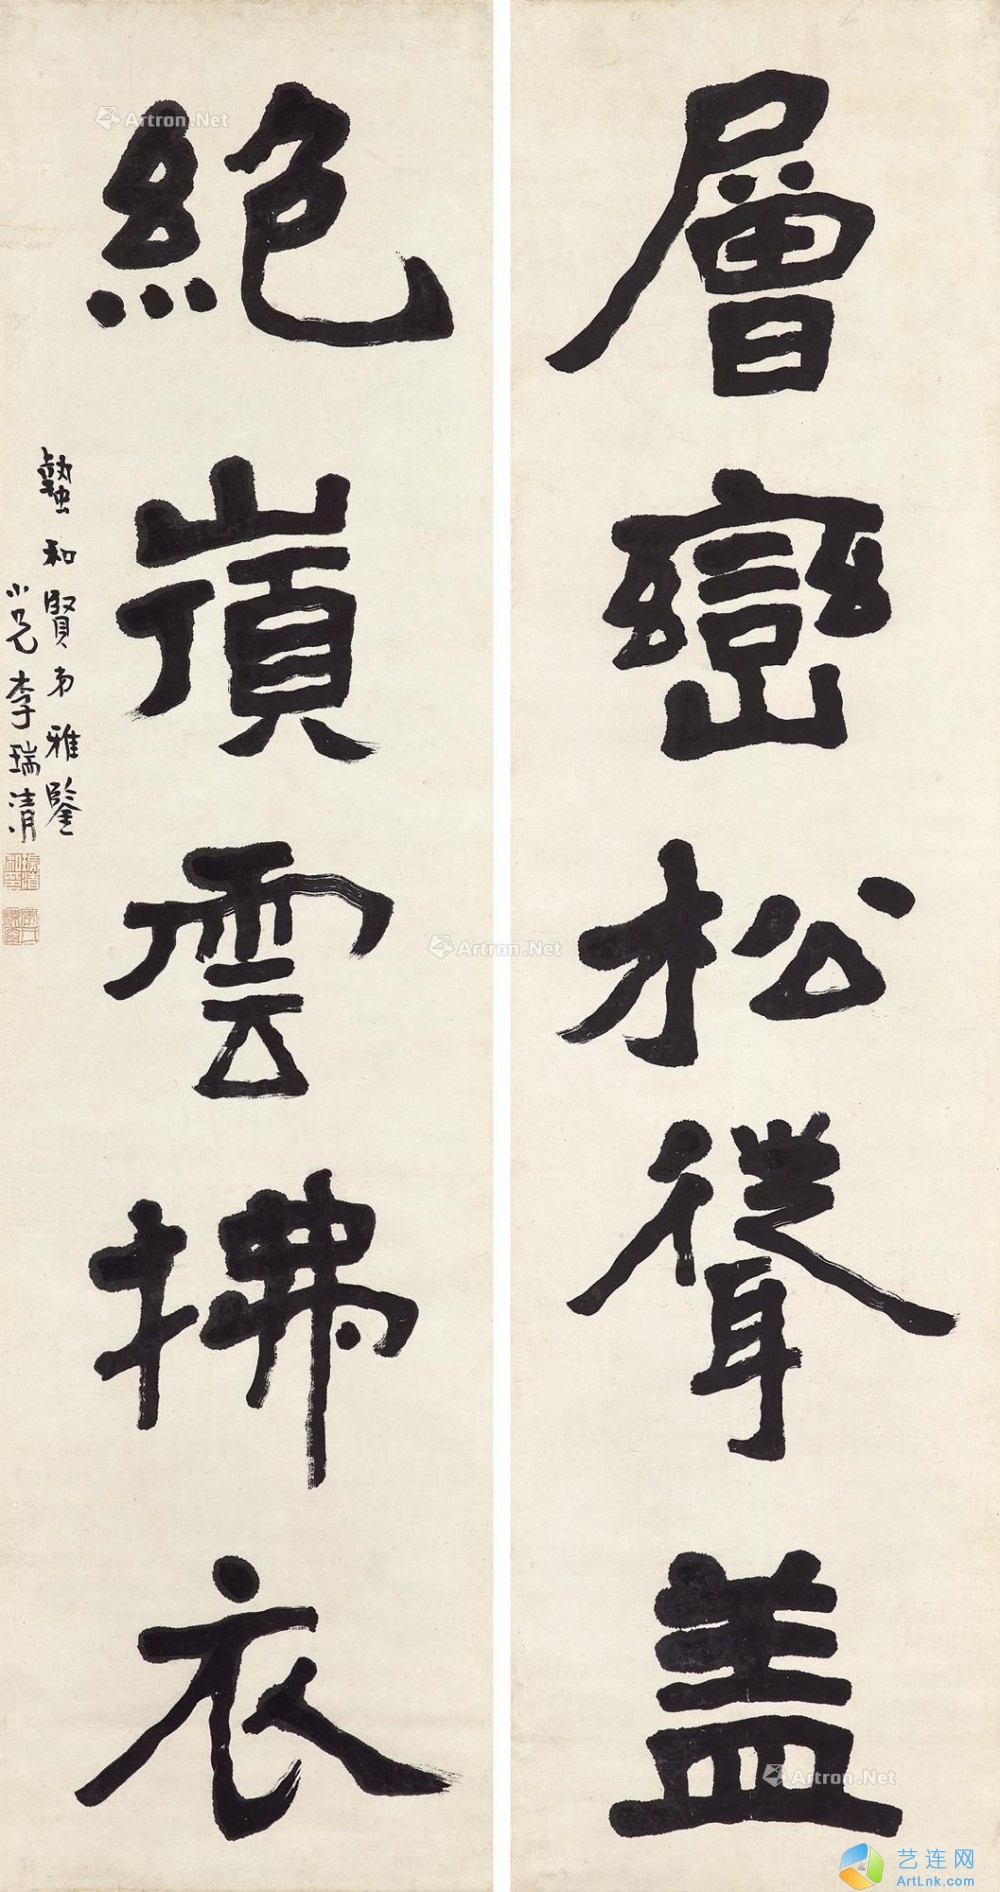 層巒松聳盖
絕嶺雲拂衣
蟄和賢弟雅鑒
小兄李瑞清
Artron.Net
Artron.Net
Artron.Net
艺连网
ArtLnk.com